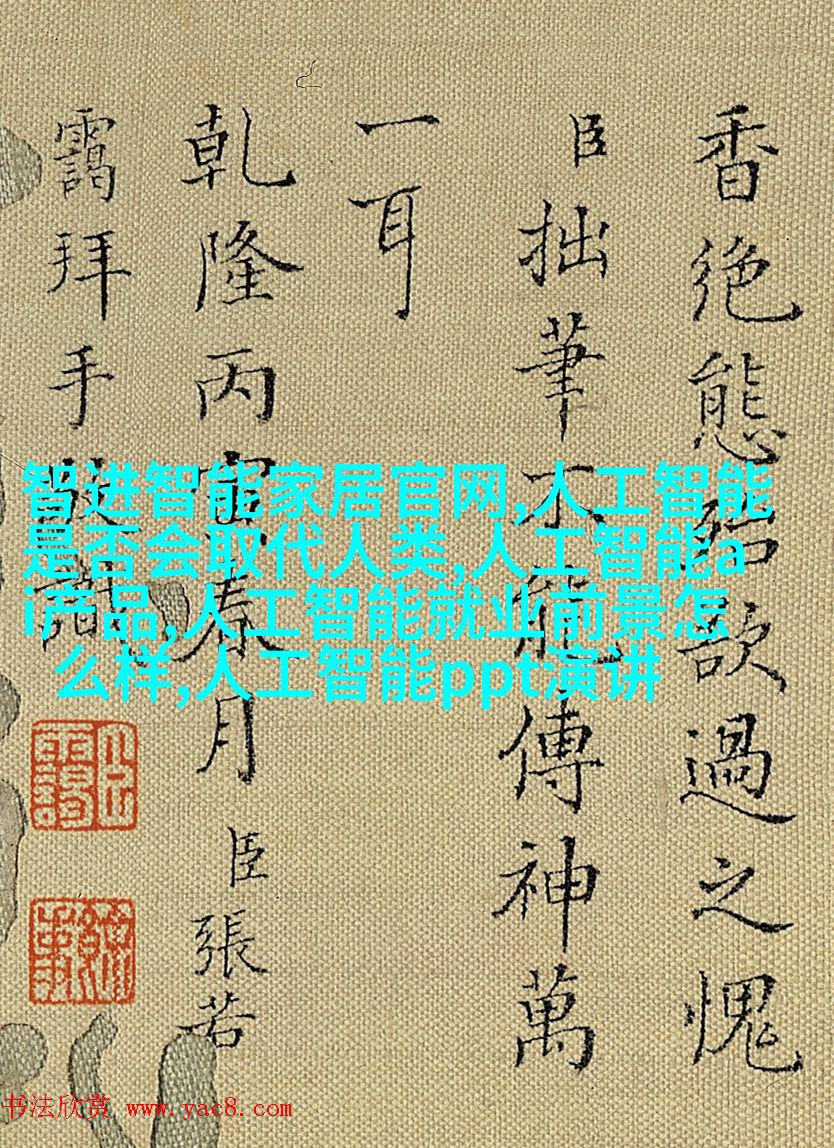 香絶態殆欲過之愧
臣拙筆不能傳神萬
一耳
乾隆丙寅春月臣張若
靄拜手敬識
智进智能家居官网,人工智能
是否会取代人类,人工智能a
i产品,人工智能就业前景怎
么样,人工智能ppt演讲
书法欣赏 www.yac8.com